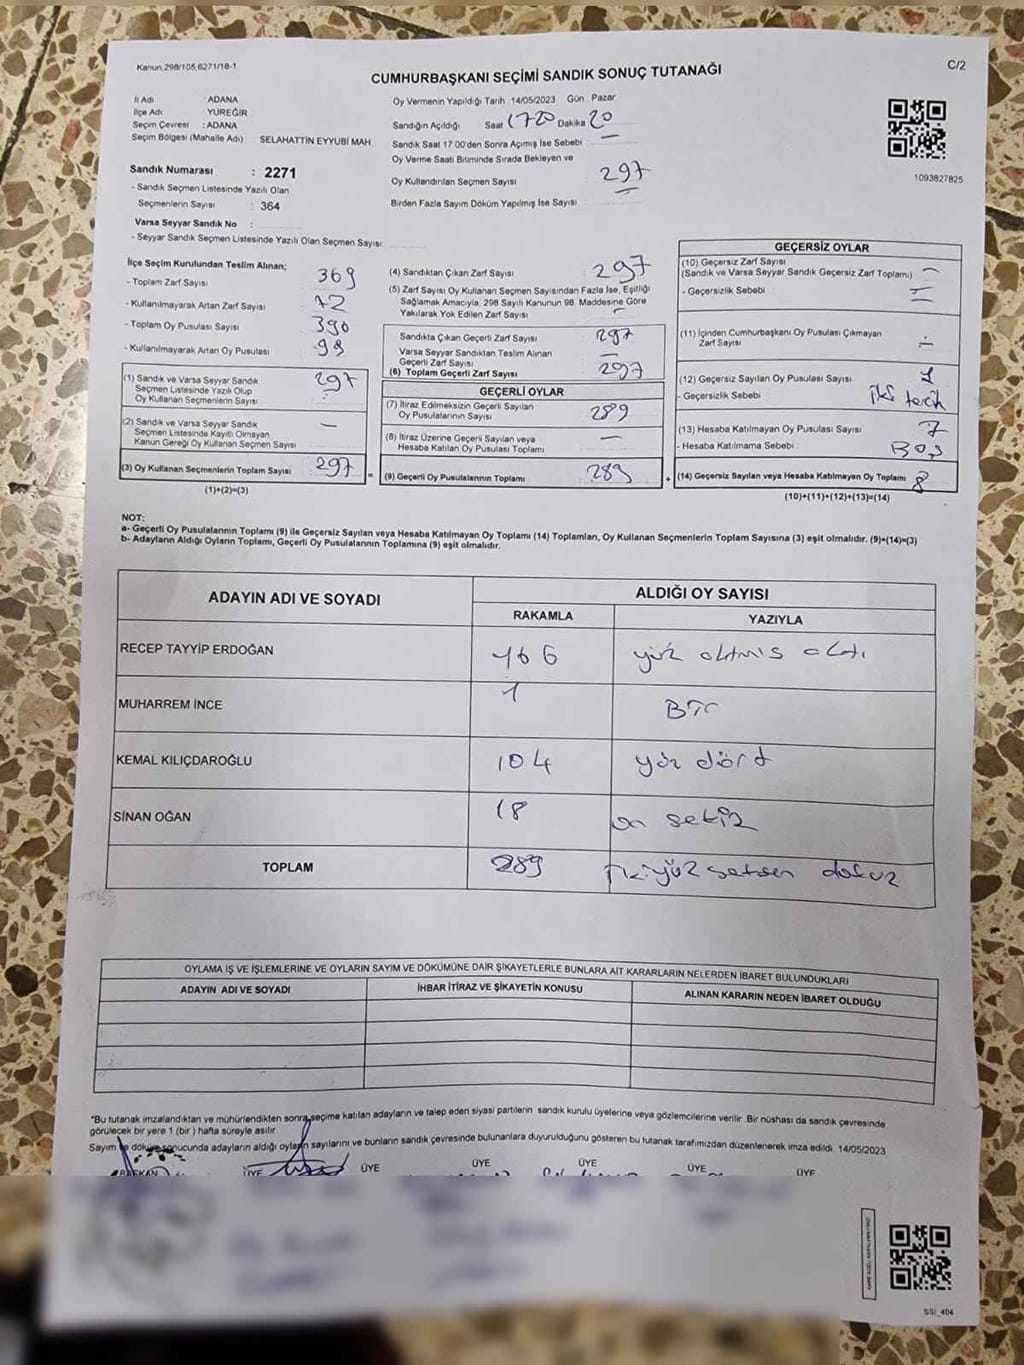 Kanun 298/105,6271/18-1
C/2
CUMHURBAŞKANI SEÇİMİ SANDIK SONUÇ TUTANAĞI
İl Adı : ADANA
İlçe Adı : YÜREĞİR
Seçim Çevresi : ADANA
Seçim Bölgesi (Mahalle Adı) : SELAHATTİN EYYUBİ MAH
Sandık Numarası : 2271
- Sandık Seçmen Listesinde Yazılı Olan
Seçmenlerin Sayısı : 364
Varsa Seyyar Sandık No :
- Seyyar Sandık Seçmen Listesinde Yazılı Olan Seçmen Sayısı:
Oy Vermenin Yapıldığı Tarih : 14/05/2023 Gün : Pazar
Sandığın Açıldığı Saat 1720 Dakika 20
Sandık Saat 17.00'den Sonra Açımış İse Sebebi :
Oy Verme Saati Bitiminde Sırada Bekleyen ve
Oy Kullandırılan Seçmen Sayısı 297
Birden Fazla Sayım Döküm Yapılmış İse Sayısı
1093627825
İlçe Seçim Kurulundan Teslim Alınan;
- Toplam Zarf Sayısı : 369
- Kullanılmayarak Artan Zarf Sayısı : 72
- Toplam Oy Pusulası Sayısı : 390
- Kullanılmayarak Artan Oy Pusulası : 93
(1) Sandık ve Varsa Seyyar Sandık
Seçmen Listesinde Yazılı Olup
Oy Kullanan Seçmenlerin Sayısı 297
(2) Sandık ve Varsa Seyyar Sandık
Seçmen Listesinde Kayıtlı Olmayan
Kanun Gereği Oy Kullanan Seçmen Sayısı —
(3) Oy Kullanan Seçmenlerin Toplam Sayısı 297
(1)+(2)=(3)
(4) Sandıktan Çıkan Zarf Sayısı 297
(5) Zarf Sayısı Oy Kullanan Seçmen Sayısından Fazla İse, Eşitliği
Sağlamak Amacıyla, 298 Sayılı Kanunun 98. Maddesine Göre
Yakılarak Yok Edilen Zarf Sayısı —
Sandıkta Çıkan Geçerli Zarf Sayısı 297
Varsa Seyyar Sandıktan Teslim Alınan
Geçerli Zarf Sayısı —
(6) Toplam Geçerli Zarf Sayısı 297
GEÇERLİ OYLAR
(7) İtiraz Edilmeksizin Geçerli Sayılan
Oy Pusulalarının Sayısı 289
(8) İtiraz Üzerine Geçerli Sayılan veya
Hesaba Katılan Oy Pusulası Toplamı —
= (9) Geçerli Oy Pusulalarının Toplamı 289
GEÇERSİZ OYLAR
(10) Geçersiz Zarf Sayısı
(Sandık ve Varsa Seyyar Sandık Geçersiz Zarf Toplamı) —
- Geçersizlik Sebebi :
(11) İçinden Cumhurbaşkanı Oy Pusulası Çıkmayan
Zarf Sayısı
(12) Geçersiz Sayılan Oy Pusulası Sayısı : 1
- Geçersizlik Sebebi iki tercih
(13) Hesaba Katılmayan Oy Pusulası Sayısı : 7
- Hesaba Katılmama Sebebi : Boş
+ (14) Geçersiz Sayılan veya Hesaba Katılmayan Oy Toplamı 8
(10)+(11)+(12)+(13)=(14)
NOT:
a- Geçerli Oy Pusulalarının Toplamı (9) ile Geçersiz Sayılan veya Hesaba Katılmayan Oy Toplamı (14) Toplamları, Oy Kullanan Seçmenlerin Toplam Sayısına (3) eşit olmalıdır. (9)+(14)=(3)
b- Adayların Aldığı Oyların Toplamı, Geçerli Oy Pusulalarının Toplamına (9) eşit olmalıdır.
ADAYIN ADI VE SOYADI
ALDIĞI OY SAYISI
RAKAMLA YAZIYLA
RECEP TAYYİP ERDOĞAN 166 yüz altmış altı
MUHARREM İNCE 1 Bir
KEMAL KILIÇDAROĞLU 104 yüz dört
SİNAN OĞAN 18 on sekiz
TOPLAM 289 ikiyüz seksen dokuz
OYLAMA İŞ VE İŞLEMLERİNE VE OYLARIN SAYIM VE DÖKÜMÜNE DAİR ŞİKAYETLERLE BUNLARA AİT KARARLARIN NELERDEN İBARET BULUNDUKLARI
ADAYIN ADI VE SOYADI İHBAR İTİRAZ VE ŞİKAYETİN KONUSU ALINAN KARARIN NEDEN İBARET OLDUĞU
"Bu tutanak imzalandıktan ve mühürlendikten sonra seçime katılan adayların ve talep eden siyasi partilerin sandık kurulu üyelerine veya gözlemcilerine verilir. Bir nüshası da sandık çevresinde
görülecek bir yere 1 (bir) hafta süreyle asılır.
Sayım ve döküm sonucunda adayların aldığı oyların sayılarını ve bunların sandık çevresinde bulunanlara duyurulduğunu gösteren bu tutanak tarafımızdan düzenlenerek imza edildi. 14/05/2023
BAŞKAN ÜYE ÜYE ÜYE ÜYE ÜYE ÜYE
SSI_404